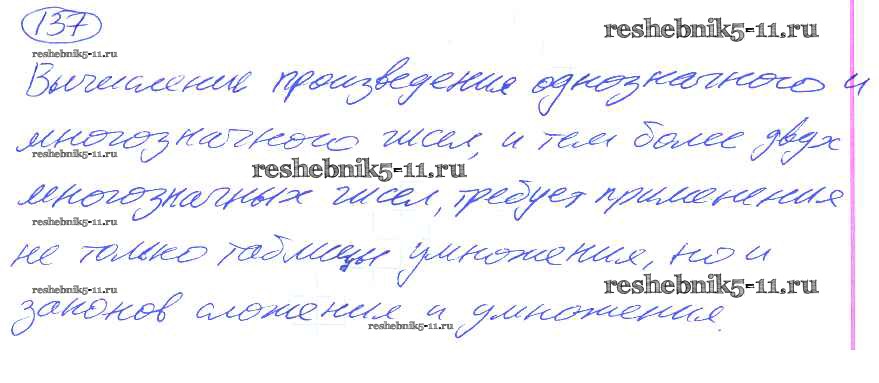 137
reshebnik5-11.ru
reshebnik5-11.ru
Вычисление произведения однозначного и
многозначного чисел, и тем более двух
reshebnik5-11.ru
reshebnik5-11.ru
многозначных чисел, требует применения
reshebnik5-11.ru
не только таблицы умножения, но и
reshebnik5-11.ru
reshebnik5-11.ru
законов сложения и умножения.
reshebnik5-11.ru